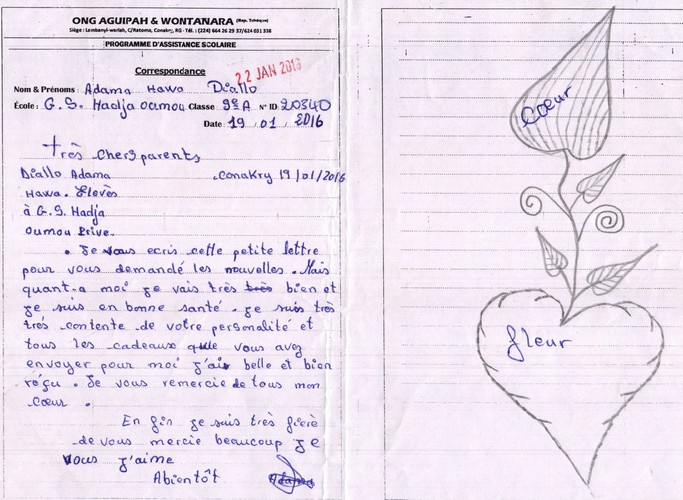 ONG AGUIPAH & WONTANARA (Rep. Tchèque)
Siège : Lambanyi-wariah, C/Ratoma, Conakry, RG - Tél. : (224) 664 26 29 37/624 031 338
PROGRAMME D'ASSISTANCE SCOLAIRE
Correspondance
22 JAN 2016
Nom & Prénoms : Adama Hawa Diallo
École : G.S. Hadja oumou Classe 9è A N° ID: 20340
Date : 19 / 01 / 2016
très chers parents
Diallo Adama Conakry 19/01/2016
Hawa. Elevès
à G.S. Hadja
Oumou Prive.
. Je vous ecris cette petite lettre
pour vous demandé les nouvelles. Mais
quant-a moi je vais très très bien et
je suis en bonne santé. je suis très
très contente de votre personalité et
tous les cadeaux que vous avez
envoyer pour moi j'ai belle et bien
réçu. Je vous remercie de tous mon
cœur.
En fin je suis très fière
de vous mercie beaucoup je
vous j'aime
Abientôt Adama
cœur
fleur